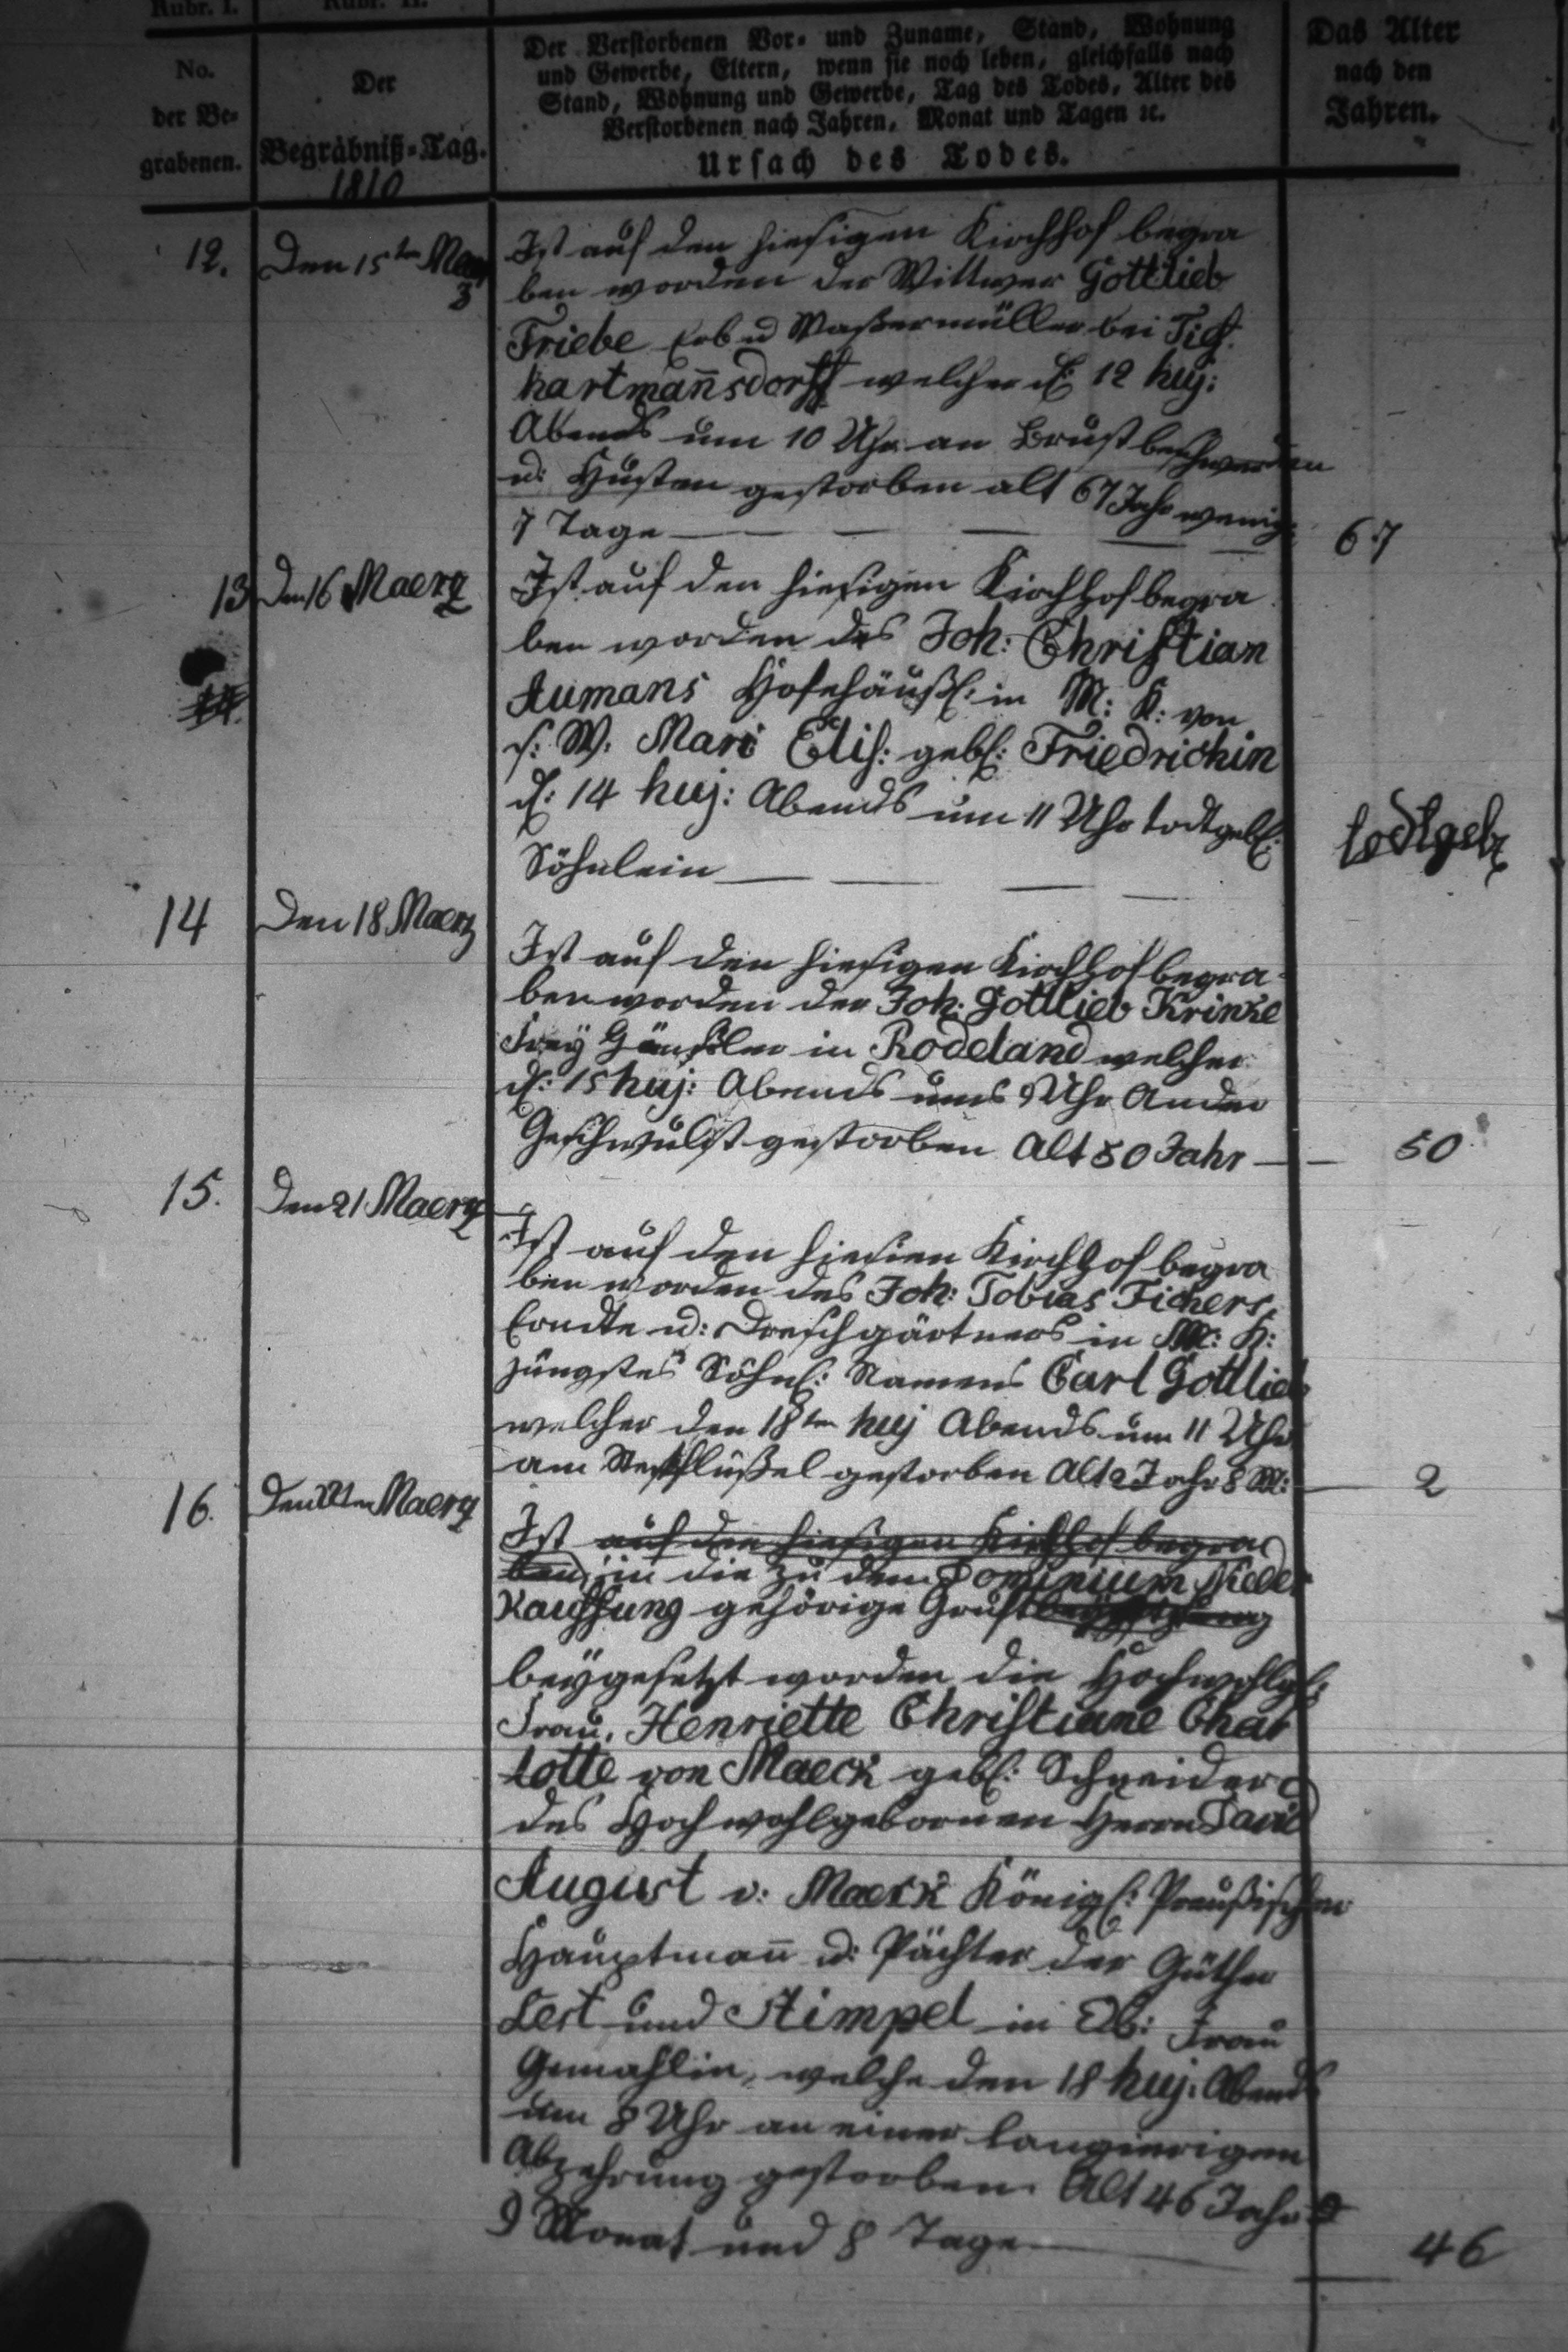 Rubr. I. Rubr. II.
No. der Be- grabenen.
Der Begräbniß-Tag.
1810
Der Verstorbenen Vor- und Zuname, Stand, Wohnung
und Gewerbe, Eltern, wenn sie noch leben, gleichfalls nach
Stand, Wohnung und Gewerbe, Tag des Todes, Alter des
Verstorbenen nach Jahren, Monat und Tagen ꝛc.
Ursach des Todes.
Das Alter
nach den
Jahren.
12. Den 15ten Maerz
Ist auf den hiesigen Kirchhof begra
ben worden der Wittwer Gottlieb
Friebe Erb u Waßermüller bei
hartmañsdorff welcher d: 12 huj:
Abends um 10 Uhr an Brustbeschwerden
u: Husten gestorben alt 67 Jahr wenig:
7 Tage
67
13 Den 16 Maerz
Ist auf den hiesigen Kirchhof begra
ben worden des Joh: Christian
Aumans Hofehäußl: in M: K: von
s: W. Mari Elis: geb: Friedrichin
d: 14 huj: Abends um 11 Uhr todtgeb:
Söhnlein
todtgeb
14 Den 18 Maerz
Ist auf den hiesigen Kirchhof begra-
ben worden der Joh: Gottlieb Krinke
Frey Häusler in Rodeland welcher
d: 15 huj: Abends um 9 Uhr An der
Geschwulst gestorben Alt 50 Jahr
50
15. Den 21 Maerz
Ist auf den hiesien Kirchhof begra
ben worden des Joh: Tobias Fichers,
Erndte u: Dreschgärtners in M: K:
jüngstes Söhnl: Namens Carl Gottlieb
welcher den 18ten huj Abends um 11 Uhr
am Steckflußel gestorben Alt 2 Jahr 8 M:
2
16. Den 22ten Maerz
Ist auf den hiesigen Kirchhof begra
ben, in die zu dem Dominium Nieder
Kauffung gehörige Gruft
beygesetzt worden die Hochwohlgb:
Frau, Henriette Christiane Char
lotte von Maeck geb: Schneider
des Hochwohlgebornen Herrn David
August v: Maeck Königl: Preußischen
Hauptmañ u: Pächter der Güther
Lest und Stimpel in Ob: Frau
Gemahlin, welche den 18 huj: Abends
um 8 Uhr an einer langierigen
Abzehrung gestorben. Alt 46 Jahr
9 Monat und 8 Tage
46